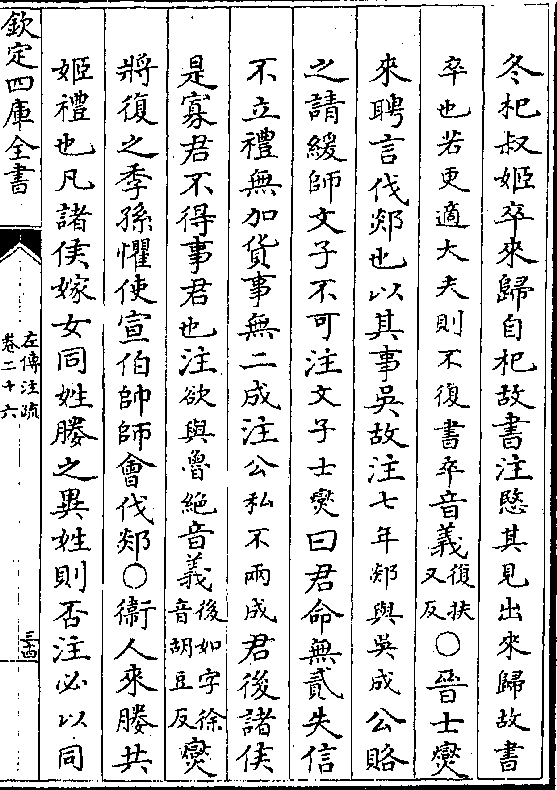 冬杞叔姬卒來歸自杞故書注愍其見出來歸故書
卒也若更適大夫則不復書卒音義復扶又反○晉士燮
來聘言伐郯也以其事吳故注七年郯與吳成公賂
之請緩師文子不可注文子士燮曰君命無貳失信
不立禮無加貨事無二成注公私不兩成君後諸侯
是寡君不得事君也注欲與魯絶音義後如字徐音胡豆反燮
將復之季孫懼使宣伯帥師會伐郯○衞人來媵共
姬禮也凡諸侯嫁女同姓媵之異姓則否注必以同
欽定四庫全書
左傳注疏
卷二十六
三十四